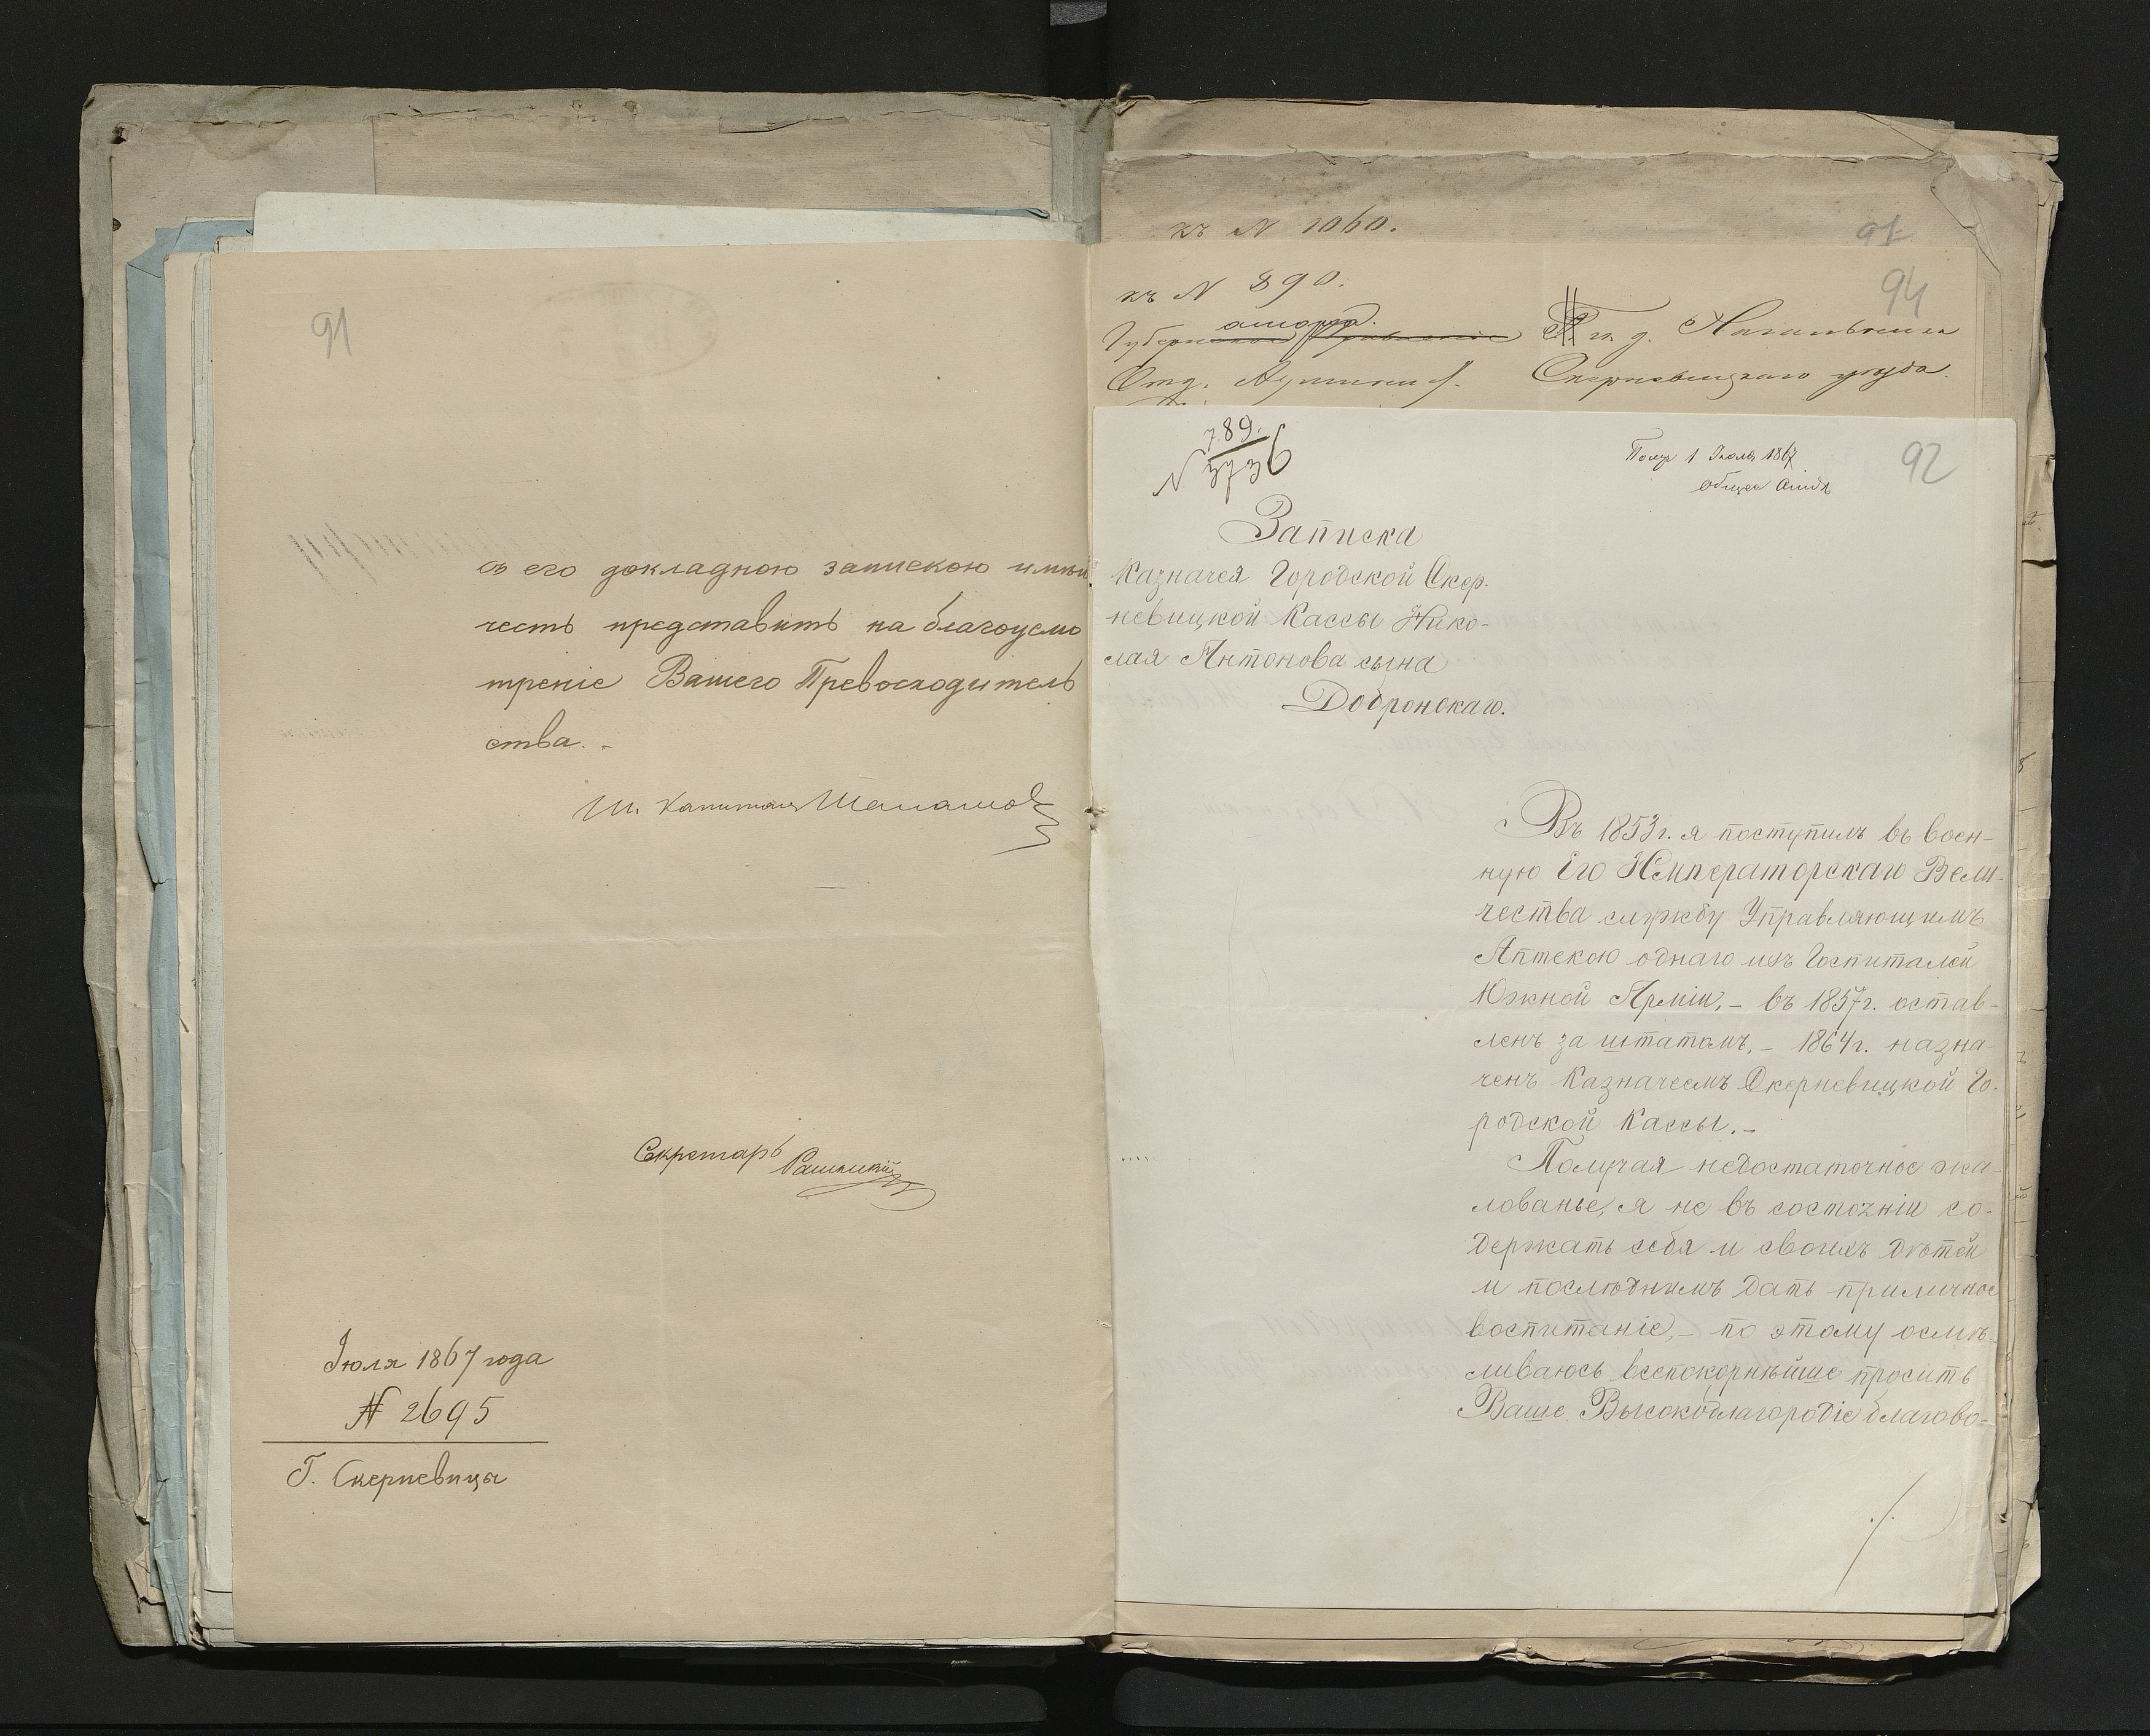 91
съ его докладною запискою имѣю
честь представить на благоусмо
трѣніе Вашего Превосходитель
ства. -
Шт. Капитанъ
Секретарь
Іюля 1867 года
№ 2695
Г. Скерневицы
къ N 1060.
91
къ N 890.
94
Г. г. д. Начальника
Отд.
Скерневицкаго уѣзда.
789.
N
Получ 1 Іюля 1867
92
Записка
Казначея Городской Скер-
невицкой Кассы Нико-
лая Антонова сына
Добронскаго.
Въ 1853 г. я поступилъ въ воен-
ную Его Императорскаго Вели-
чества службу Управляющимъ
Аптекою однаго изъ Госпиталей
Южной Арміи, - въ 1857 г. остав-
ленъ за штатомъ, - 1864 г. назна-
ченъ Казначеемъ Скерневицкой Го-
родской Кассы. -
Получая недостаточное жа-
лованье, я не въ состояніи со-
держать себя и своихъ дѣтей
и послѣднимъ дать приличное
воспитаніе, - по этому осмѣ-
ливаюсь всепокорнѣйше просить
Ваше Высокоблагородіе благово-